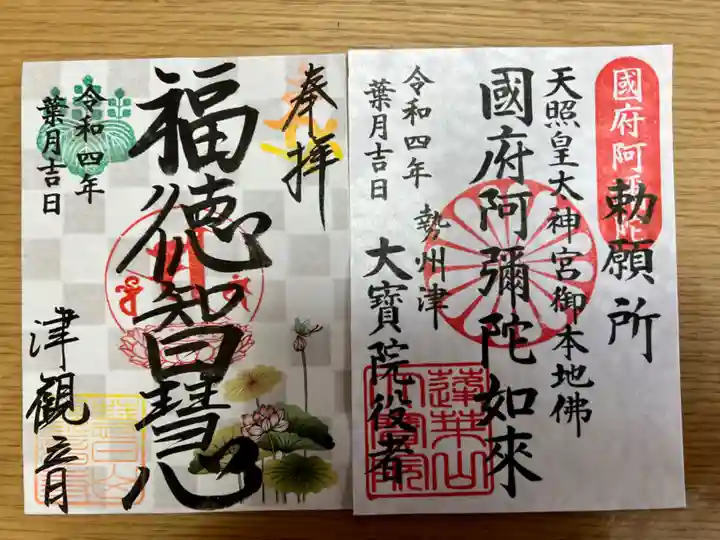 奉拝
福徳智慧
令和四年
葉月吉日
津観音
國府阿彌陀
勅願所
天照皇大神宮御本地佛
國府阿彌陀如來
勢州津
大寶院役者
令和四年
葉月吉日
蓮華山
大寶院